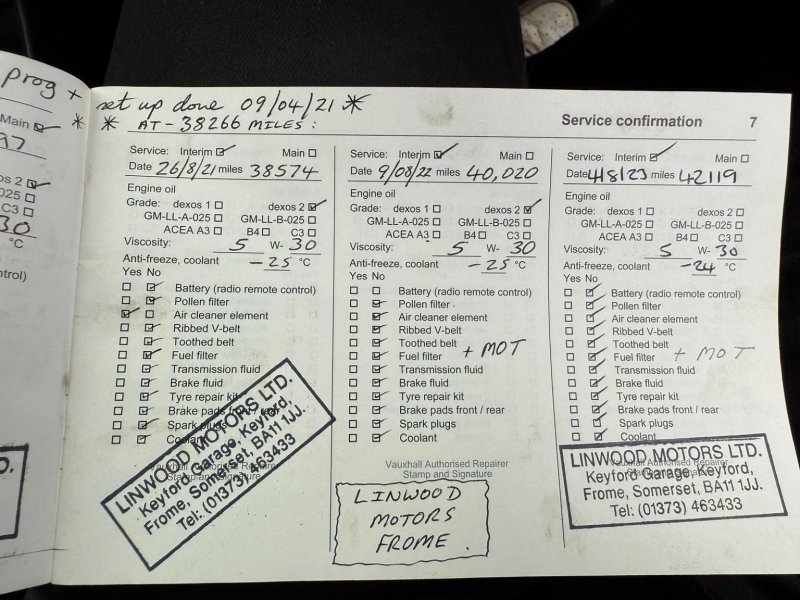 prog +
set up done 09/04/21 *
* * AT - 38266 MILES :
Service confirmation 7
Main
97
os 2
025
C3
30
°C
ntrol)
O.
Service: Interim Main
Date 26/8/21 miles 38574
Engine oil
Grade: dexos 1 dexos 2
GM-LL-A-025 GM-LL-B-025
ACEA A3 B4 C3
Viscosity: 5 W- 30
Anti-freeze, coolant -25 °C
Yes No
Battery (radio remote control)
Pollen filter
Air cleaner element
Ribbed V-belt
Toothed belt
Fuel filter
Transmission fluid
Brake fluid
Tyre repair kit
Brake pads front / rear
Spark plugs
Coolant
Vauxhall Authorised Repairer
Stamp and Signature
LINWOOD MOTORS LTD.
Keyford Garage, Keyford,
Frome, Somerset, BA11 1JJ.
Tel: (01373) 463433
Service: Interim Main
Date 9/08/22 miles 40,020
Engine oil
Grade: dexos 1 dexos 2
GM-LL-A-025 GM-LL-B-025
ACEA A3 B4 C3
Viscosity: 5 W- 30
Anti-freeze, coolant -25 °C
Yes No
Battery (radio remote control)
Pollen filter
Air cleaner element
Ribbed V-belt
Toothed belt
Fuel filter + MOT
Transmission fluid
Brake fluid
Tyre repair kit
Brake pads front / rear
Spark plugs
Coolant
Vauxhall Authorised Repairer
Stamp and Signature
LINWOOD
MOTORS
FROME.
Service: Interim Main
Date 4/8/23 miles 42119
Engine oil
Grade: dexos 1 dexos 2
GM-LL-A-025 GM-LL-B-025
ACEA A3 B4 C3
Viscosity: 5 W- 30
Anti-freeze, coolant -24 °C
Yes No
Battery (radio remote control)
Pollen filter
Air cleaner element
Ribbed V-belt
Toothed belt
Fuel filter + MOT
Transmission fluid
Brake fluid
Tyre repair kit
Brake pads front / rear
Spark plugs
Coolant
Vauxhall Authorised Repairer
Stamp and Signature
LINWOOD MOTORS LTD.
Keyford Garage, Keyford,
Frome, Somerset, BA11 1JJ.
Tel: (01373) 463433